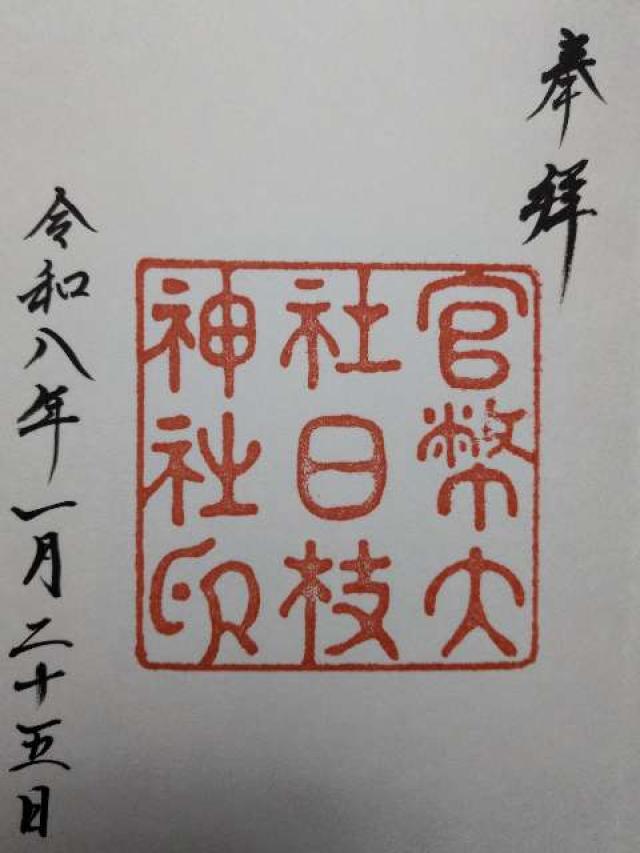 奉拝
官幣大
社日枝
神社印
令和八年一月二十五日